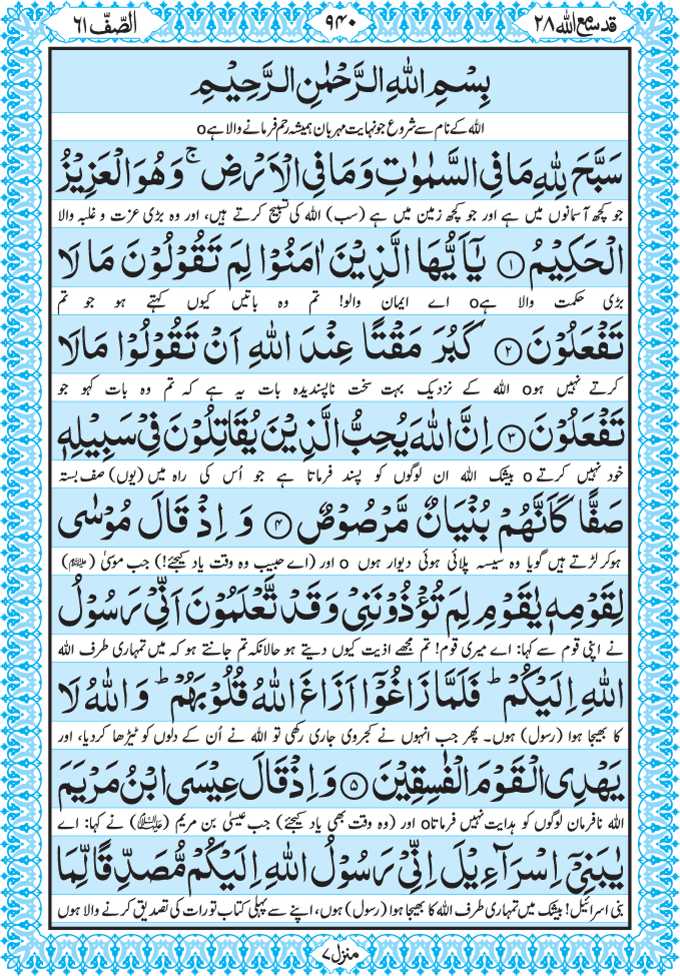 قد سمع الله ٢٨
٩٤٠
الصّفّ ٦١
بِسْمِ اللهِ الرَّحْمٰنِ الرَّحِيْمِ
اللہ کے نام سے شروع جو نہایت مہربان ہمیشہ رحم فرمانے والا ہےo
سَبَّحَ لِلّٰهِ مَا فِي السَّمٰوٰتِ وَمَا فِي الْاَرْضِ ۚ وَهُوَ الْعَزِيْزُ
جو کچھ آسمانوں میں ہے اور جو کچھ زمین میں ہے (سب) اللہ کی تسبیح کرتے ہیں، اور وہ بڑی عزت و غلبہ والا
الْحَكِيْمُ ۝١ يٰۤاَيُّهَا الَّذِيْنَ اٰمَنُوْا لِمَ تَقُوْلُوْنَ مَا لَا
بڑی حکمت والا ہےo اے ایمان والو! تم وہ باتیں کیوں کہتے ہو جو تم
تَفْعَلُوْنَ ۝٢ كَبُرَ مَقْتًا عِنْدَ اللهِ اَنْ تَقُوْلُوْا مَا لَا
کرتے نہیں ہوo اللہ کے نزدیک بہت سخت ناپسندیدہ بات یہ ہے کہ تم وہ بات کہو جو
تَفْعَلُوْنَ ۝٣ اِنَّ اللهَ يُحِبُّ الَّذِيْنَ يُقَاتِلُوْنَ فِيْ سَبِيْلِهٖ
خود نہیں کرتےo بیشک اللہ ان لوگوں کو پسند فرماتا ہے جو اُس کی راہ میں (یوں) صف بستہ
صَفًّا كَاَنَّهُمْ بُنْيَانٌ مَّرْصُوْصٌ ۝٤ وَ اِذْ قَالَ مُوْسٰى
ہو کر لڑتے ہیں گویا وہ سیسہ پلائی ہوئی دیوار ہوں o اور (اے حبیب وہ وقت یاد کیجئے!) جب موسیٰ (علیہ السلام)
لِقَوْمِهٖ يٰقَوْمِ لِمَ تُؤْذُوْنَنِيْ وَقَدْ تَّعْلَمُوْنَ اَنِّيْ رَسُوْلُ
نے اپنی قوم سے کہا: اے میری قوم! تم مجھے اذیت کیوں دیتے ہو حالانکہ تم جانتے ہو کہ میں تمہاری طرف اللہ
اللهِ اِلَيْكُمْ ؕ فَلَمَّا زَاغُوْۤا اَزَاغَ اللهُ قُلُوْبَهُمْ ؕ وَ اللهُ لَا
کا بھیجا ہوا (رسول) ہوں۔ پھر جب انہوں نے کجروی جاری رکھی تو اللہ نے اُن کے دلوں کو ٹیڑھا کر دیا، اور
يَهْدِي الْقَوْمَ الْفٰسِقِيْنَ ۝٥ وَ اِذْ قَالَ عِيْسَى ابْنُ مَرْيَمَ
اللہ نافرمان لوگوں کو ہدایت نہیں فرماتاo اور (وہ وقت بھی یاد کیجئے) جب عیسیٰ بن مریم (علیہ السلام) نے کہا: اے
يٰبَنِيْۤ اِسْرَآءِيْلَ اِنِّيْ رَسُوْلُ اللهِ اِلَيْكُمْ مُّصَدِّقًا لِّمَا
بنی اسرائیل! بیشک میں تمہاری طرف اللہ کا بھیجا ہوا (رسول) ہوں، اپنے سے پہلی کتاب تورات کی تصدیق کرنے والا ہوں
منزل ٧